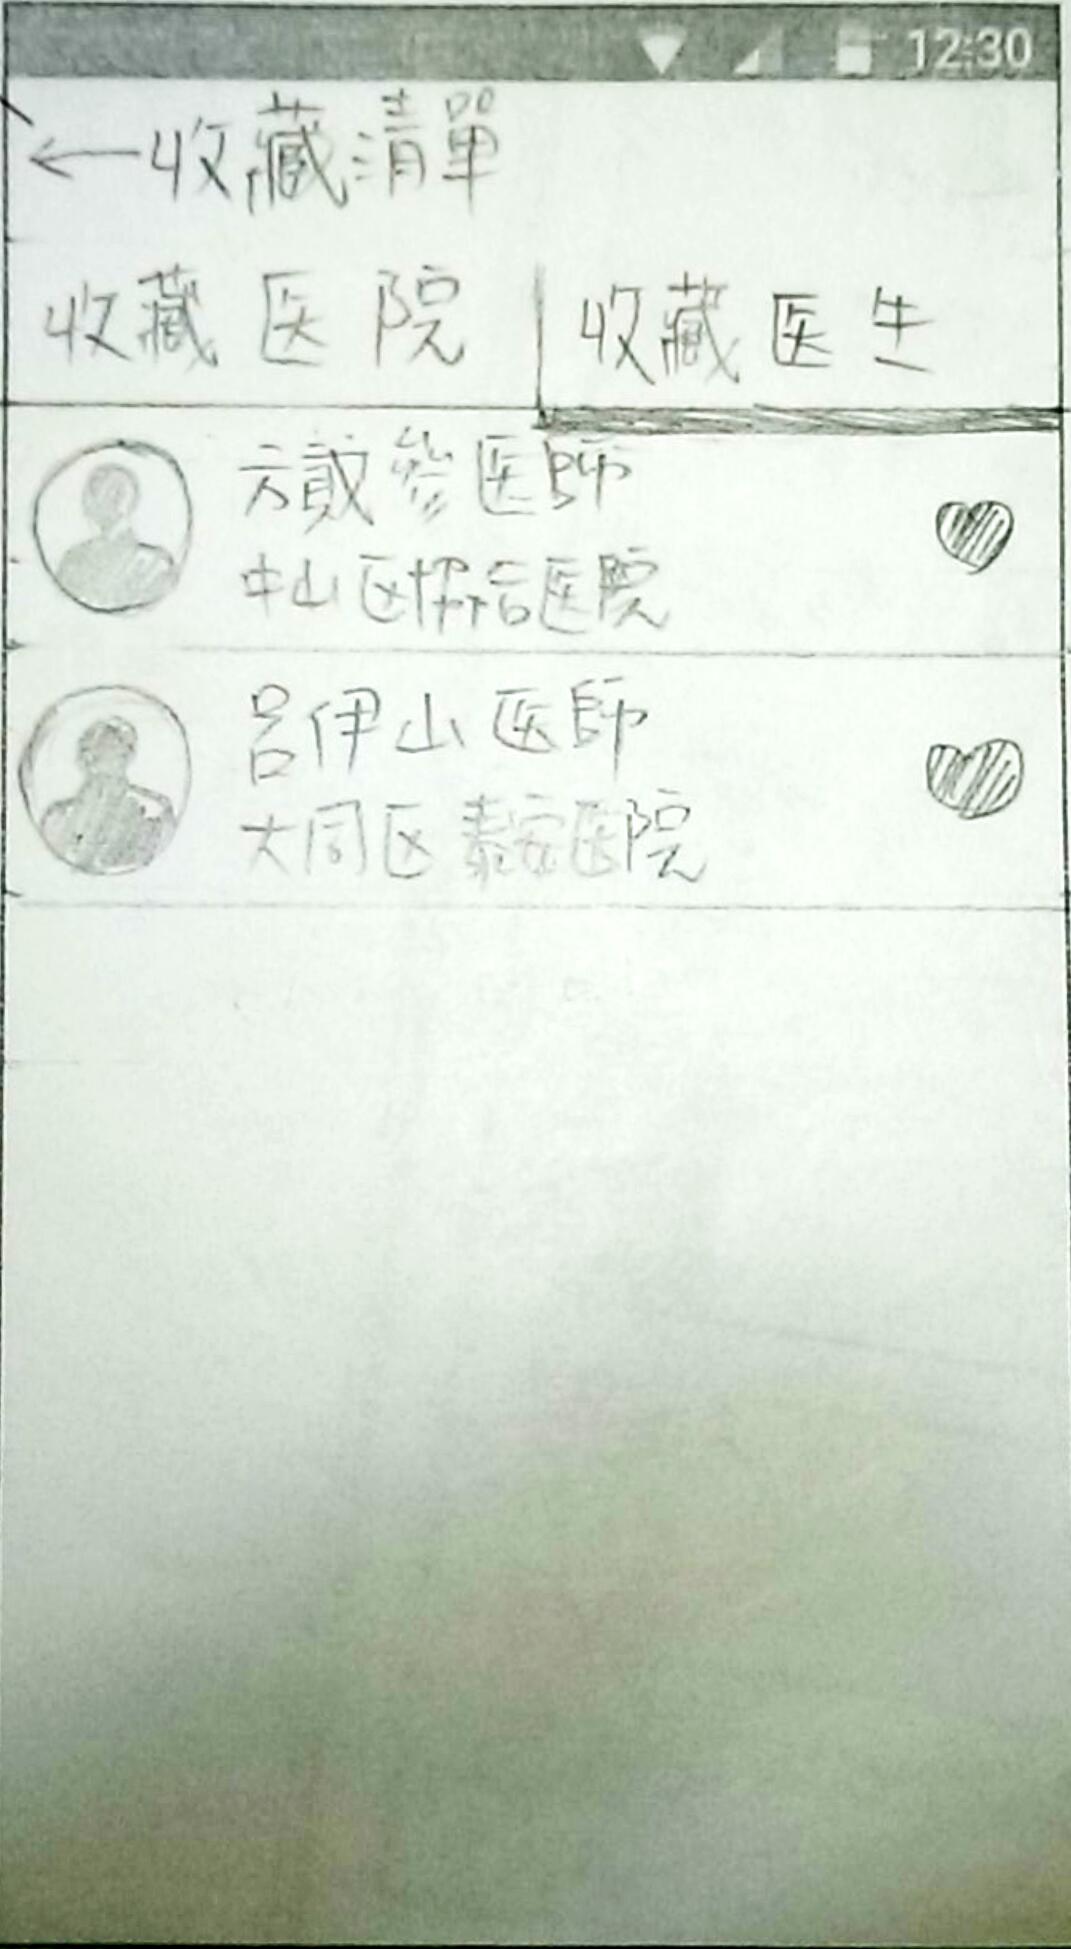 12:30
←收藏清單
收藏医院
收藏医生
方 參医師
中山区協合医院
呂伊山医師
大同区泰安医院